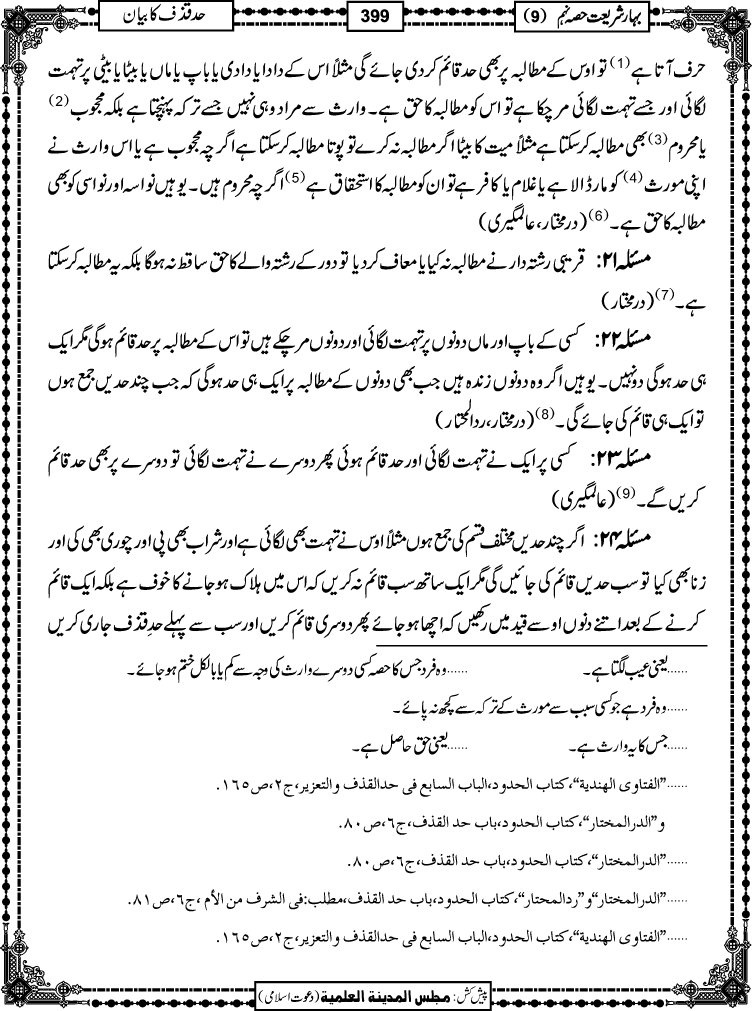 بہارِ شریعت حصہ نہم (9)
399
حد قذف کا بیان
حرف آتا ہے(1) تو اوس کے مطالبہ پر بھی حد قائم کردی جائے گی مثلاً اس کے دادا یا دادی یا باپ یا ماں یا بیٹا یا بیٹی پر تہمت
لگائی اور جسے تہمت لگائی مرچکا ہے تو اس کو مطالبہ کا حق ہے۔ وارث سے مراد وہی نہیں جسے ترکہ پہنچتا ہے بلکہ محجوب(2)
یا محروم(3) بھی مطالبہ کرسکتا ہے مثلاً میت کا بیٹا اگر مطالبہ نہ کرے تو پوتا مطالبہ کرسکتا ہے اگرچہ محجوب ہے یا اس وارث نے
اپنی مورث(4) کو مار ڈالا ہے یا غلام یا کافر ہے تو ان کو مطالبہ کا استحقاق ہے(5) اگرچہ محروم ہیں۔ یوہیں نواسہ اور نواسی کو بھی
مطالبہ کا حق ہے۔(6) (درمختار، عالمگیری)
مسئلہ ۲۱: قریبی رشتہ دار نے مطالبہ نہ کیا یا معاف کردیا تو دور کے رشتہ والے کا حق ساقط نہ ہوگا بلکہ یہ مطالبہ کرسکتا
ہے۔(7) (درمختار)
مسئلہ ۲۲: کسی کے باپ اور ماں دونوں پر تہمت لگائی اور دونوں مرچکے ہیں تو اس کے مطالبہ پر حد قائم ہوگی مگر ایک
ہی حد ہوگی دو نہیں۔ یوہیں اگر وہ دونوں زندہ ہیں جب بھی دونوں کے مطالبہ پر ایک ہی حد ہوگی کہ جب چند حدیں جمع ہوں
تو ایک ہی قائم کی جائے گی۔(8) (درمختار، ردالمحتار)
مسئلہ ۲۳: کسی پر ایک نے تہمت لگائی اور حد قائم ہوئی پھر دوسرے نے تہمت لگائی تو دوسرے پر بھی حد قائم
کریں گے۔(9) (عالمگیری)
مسئلہ ۲۴: اگر چند حدیں مختلف قسم کی جمع ہوں مثلاً اوس نے تہمت بھی لگائی ہے اور شراب بھی پی اور چوری بھی کی اور
زنا بھی کیا تو سب حدیں قائم کی جائیں گی مگر ایک ساتھ سب قائم نہ کریں کہ اس میں ہلاک ہوجانے کا خوف ہے بلکہ ایک قائم
کرنے کے بعد اتنے دنوں اوسے قید میں رکھیں کہ اچھا ہوجائے پھر دوسری قائم کریں اور سب سے پہلے حدِ قذف جاری کریں
......یعنی عیب لگتا ہے۔ ......وہ فرد جس کا حصہ کسی دوسرے وارث کی وجہ سے کم یا بالکل ختم ہوجائے۔
......وہ فرد ہے جو کسی سبب سے مورث کے ترکہ سے کچھ نہ پائے۔
......جس کا یہ وارث ہے۔ ......یعنی حق حاصل ہے۔
......”الفتاوی الھندیة“،کتاب الحدود،الباب السابع فی حدالقذف والتعزیر،ج۲،ص۱۶۵.
و”الدرالمختار“،کتاب الحدود،باب حد القذف،ج۶،ص۸۰.
......”الدرالمختار“،کتاب الحدود،باب حد القذف،ج۶،ص۸۰.
......”الدرالمختار“و”ردالمحتار“،کتاب الحدود،باب حد القذف،مطلب:فی الشرف من الأم،ج۶،ص۸۱.
......”الفتاوی الھندیة“،کتاب الحدود،الباب السابع فی حدالقذف والتعزیر،ج۲،ص۱۶۵.
پیش کش: مجلس المدینة العلمیة (دعوت اسلامی)